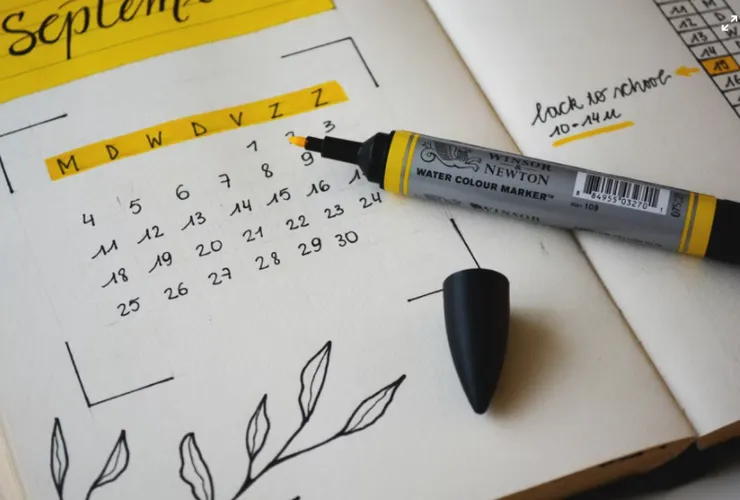 Septem
M D W D V Z Z
1 3
4 5 6 7 8 9
11 12 13 14 15 16
18 19 20 21 22 23 24
25 26 27 28 29 30
back to school
10-14u
WINSOR
& NEWTON
WATER COLOUR MARKER™
11 M
12 D
13 W
14
15
16